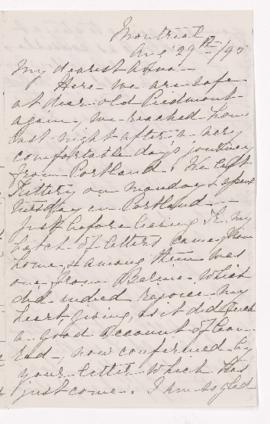 Montreal
Aug 29th/95
My dearest
Here we are safe
at dear old Piedmont
again, we reached home
last night after a very
comfortable day's journey
from Portland. We left
Kittery on Monday & spent
Tuesday in Portland —
Just before leaving K. my
batch of letters came from
home, & among them was
one from What
did indeed rejoice my
heart giving, as it did such
a good account of dear
End — now confirmed by
your letter which has
just come. I am so glad